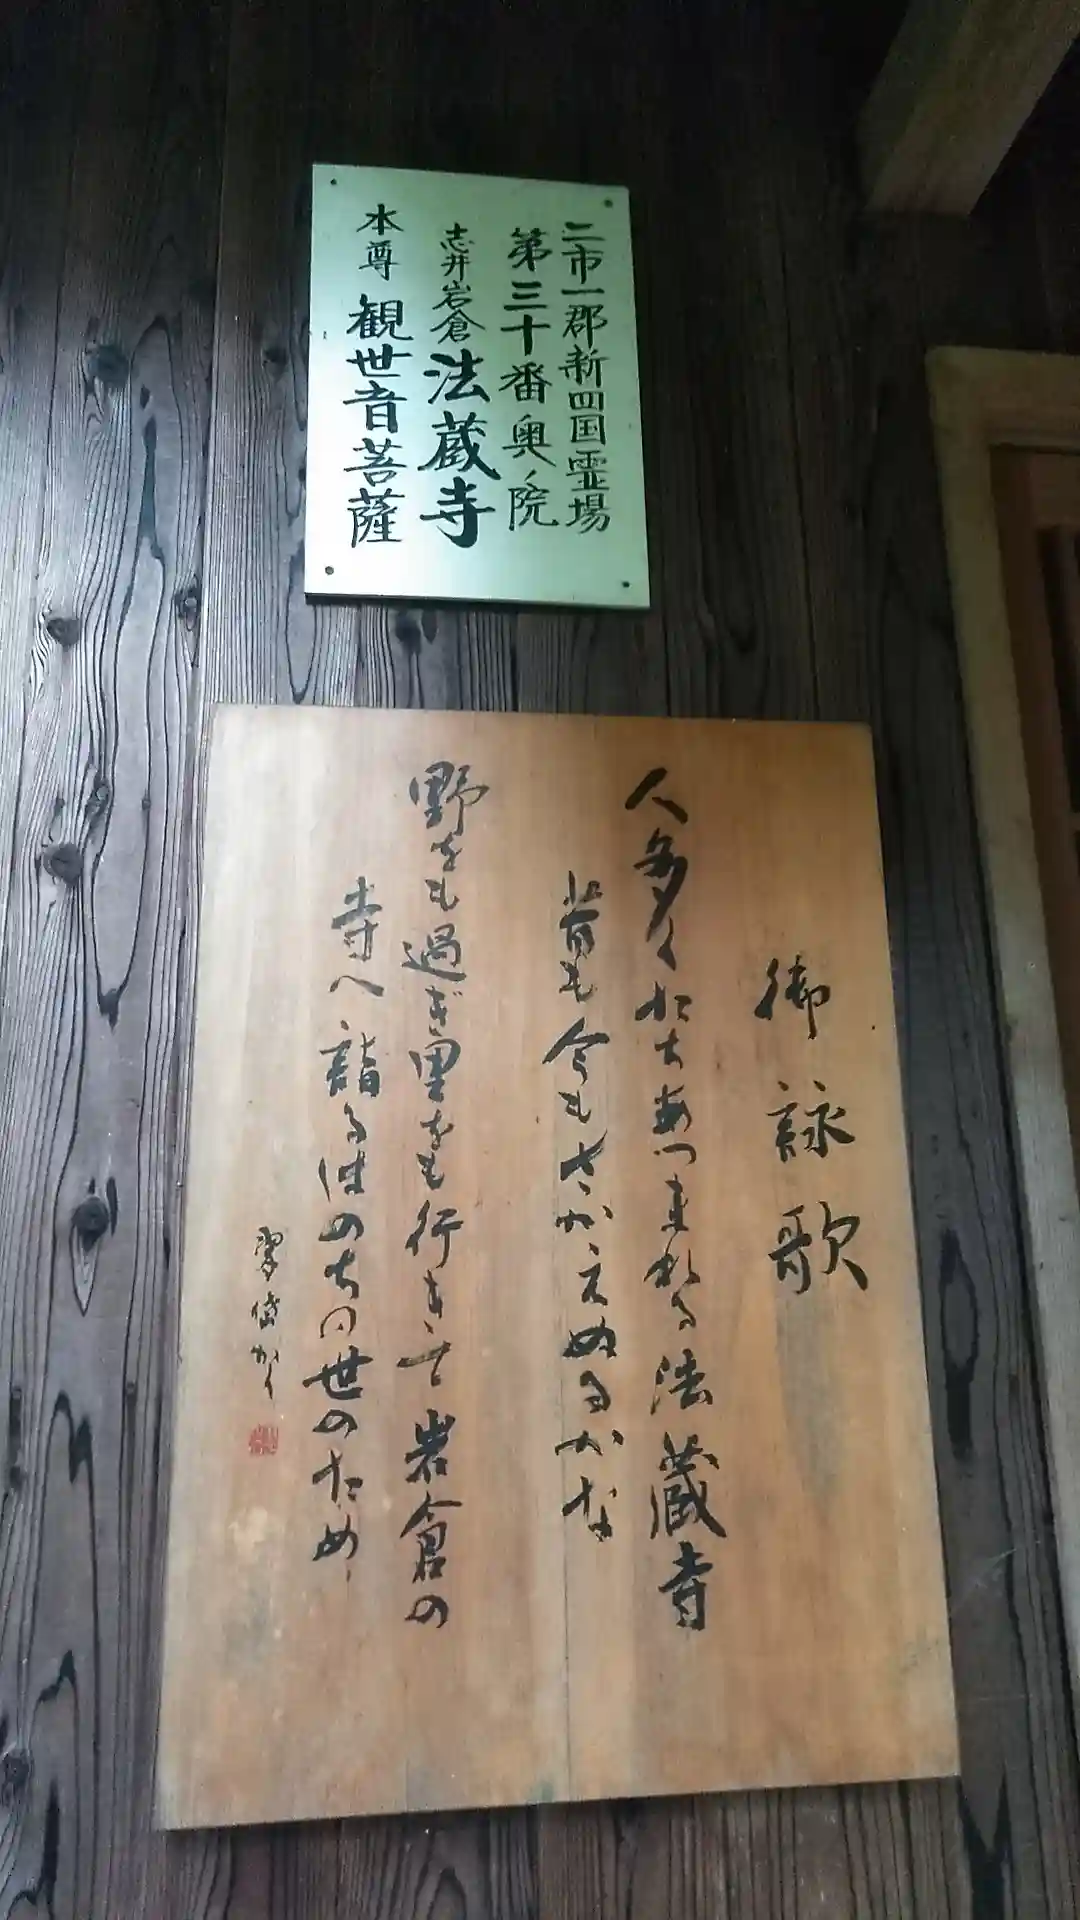 二市一郡新四国霊場
第三十番奥ノ院
志井岩倉 法蔵寺
本尊 観世音菩薩
御詠歌
人多くたちあつまれる法蔵寺
昔も今もさかえぬるかな
野をも過ぎ里をも行きて岩倉の
寺へ詣るはのちの世のため
かく